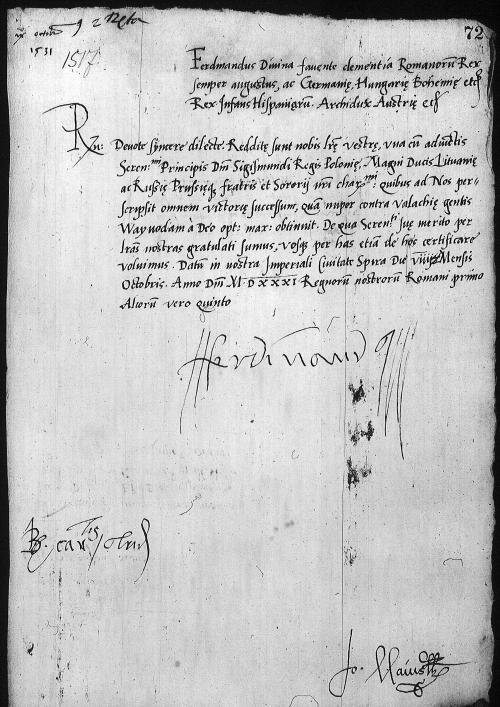 72
1531
1517
Ferdinandus Divina favente clementia Romanorũ Rex
semper augustus, ac Germanię, Hungarię Bohemię etc
Rex Infans Hispaniarũ. Archidux Austrię etc
Rde: Devote syncere dilecte. Redditę sunt nobis lrę vestrę, una cũ adiunctis
Seren:mi Principis Dñi Sigismundi Regis Polonię, Magni Ducis Lituanię
ac Russię Prussięq3 fratris et Sororij nri char:mi: quibus ad Nos per-
scripsit omnem victorię successum, quã nuper contra valachię gentis
Waywodam à Deo opt: max: obtinuit. De qua Seren:ti suę merito per
lras nostras gratulati sumus, vosq3 per has etiã de hoc certificare
voluimus. Datũ in nostra Imperiali Civitate Spira Die Mensis
Octobris. Anno Dñi M D XXXI Regnorũ nostrorũ Romani primo
Aliorũ vero quinto
Ferdinand
Jo. Maius